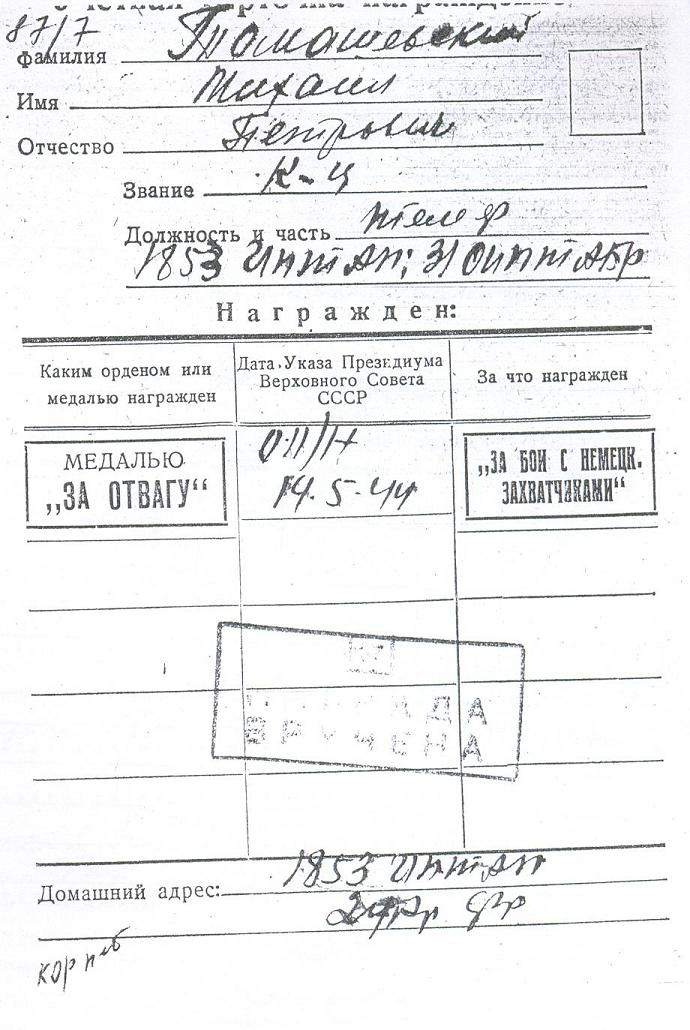 87/7
Фамилия Томашевский
Имя Михаил
Отчество Петрович
Звание К-ц
Должность и часть телеф
1853 ИПТАП; 31 ОИПТАБР
Награжден:
Каким орденом или медалью награжден
Дата Указа Президиума Верховного Совета СССР
За что награжден
МЕДАЛЬЮ
„ЗА ОТВАГУ“
011/н
14.5.44
„ЗА БОИ С НЕМЕЦК.
ЗАХВАТЧИКАМИ“
НАГРАДА
ВРУЧЕНА
1853 ИПТАП
Домашний адрес: